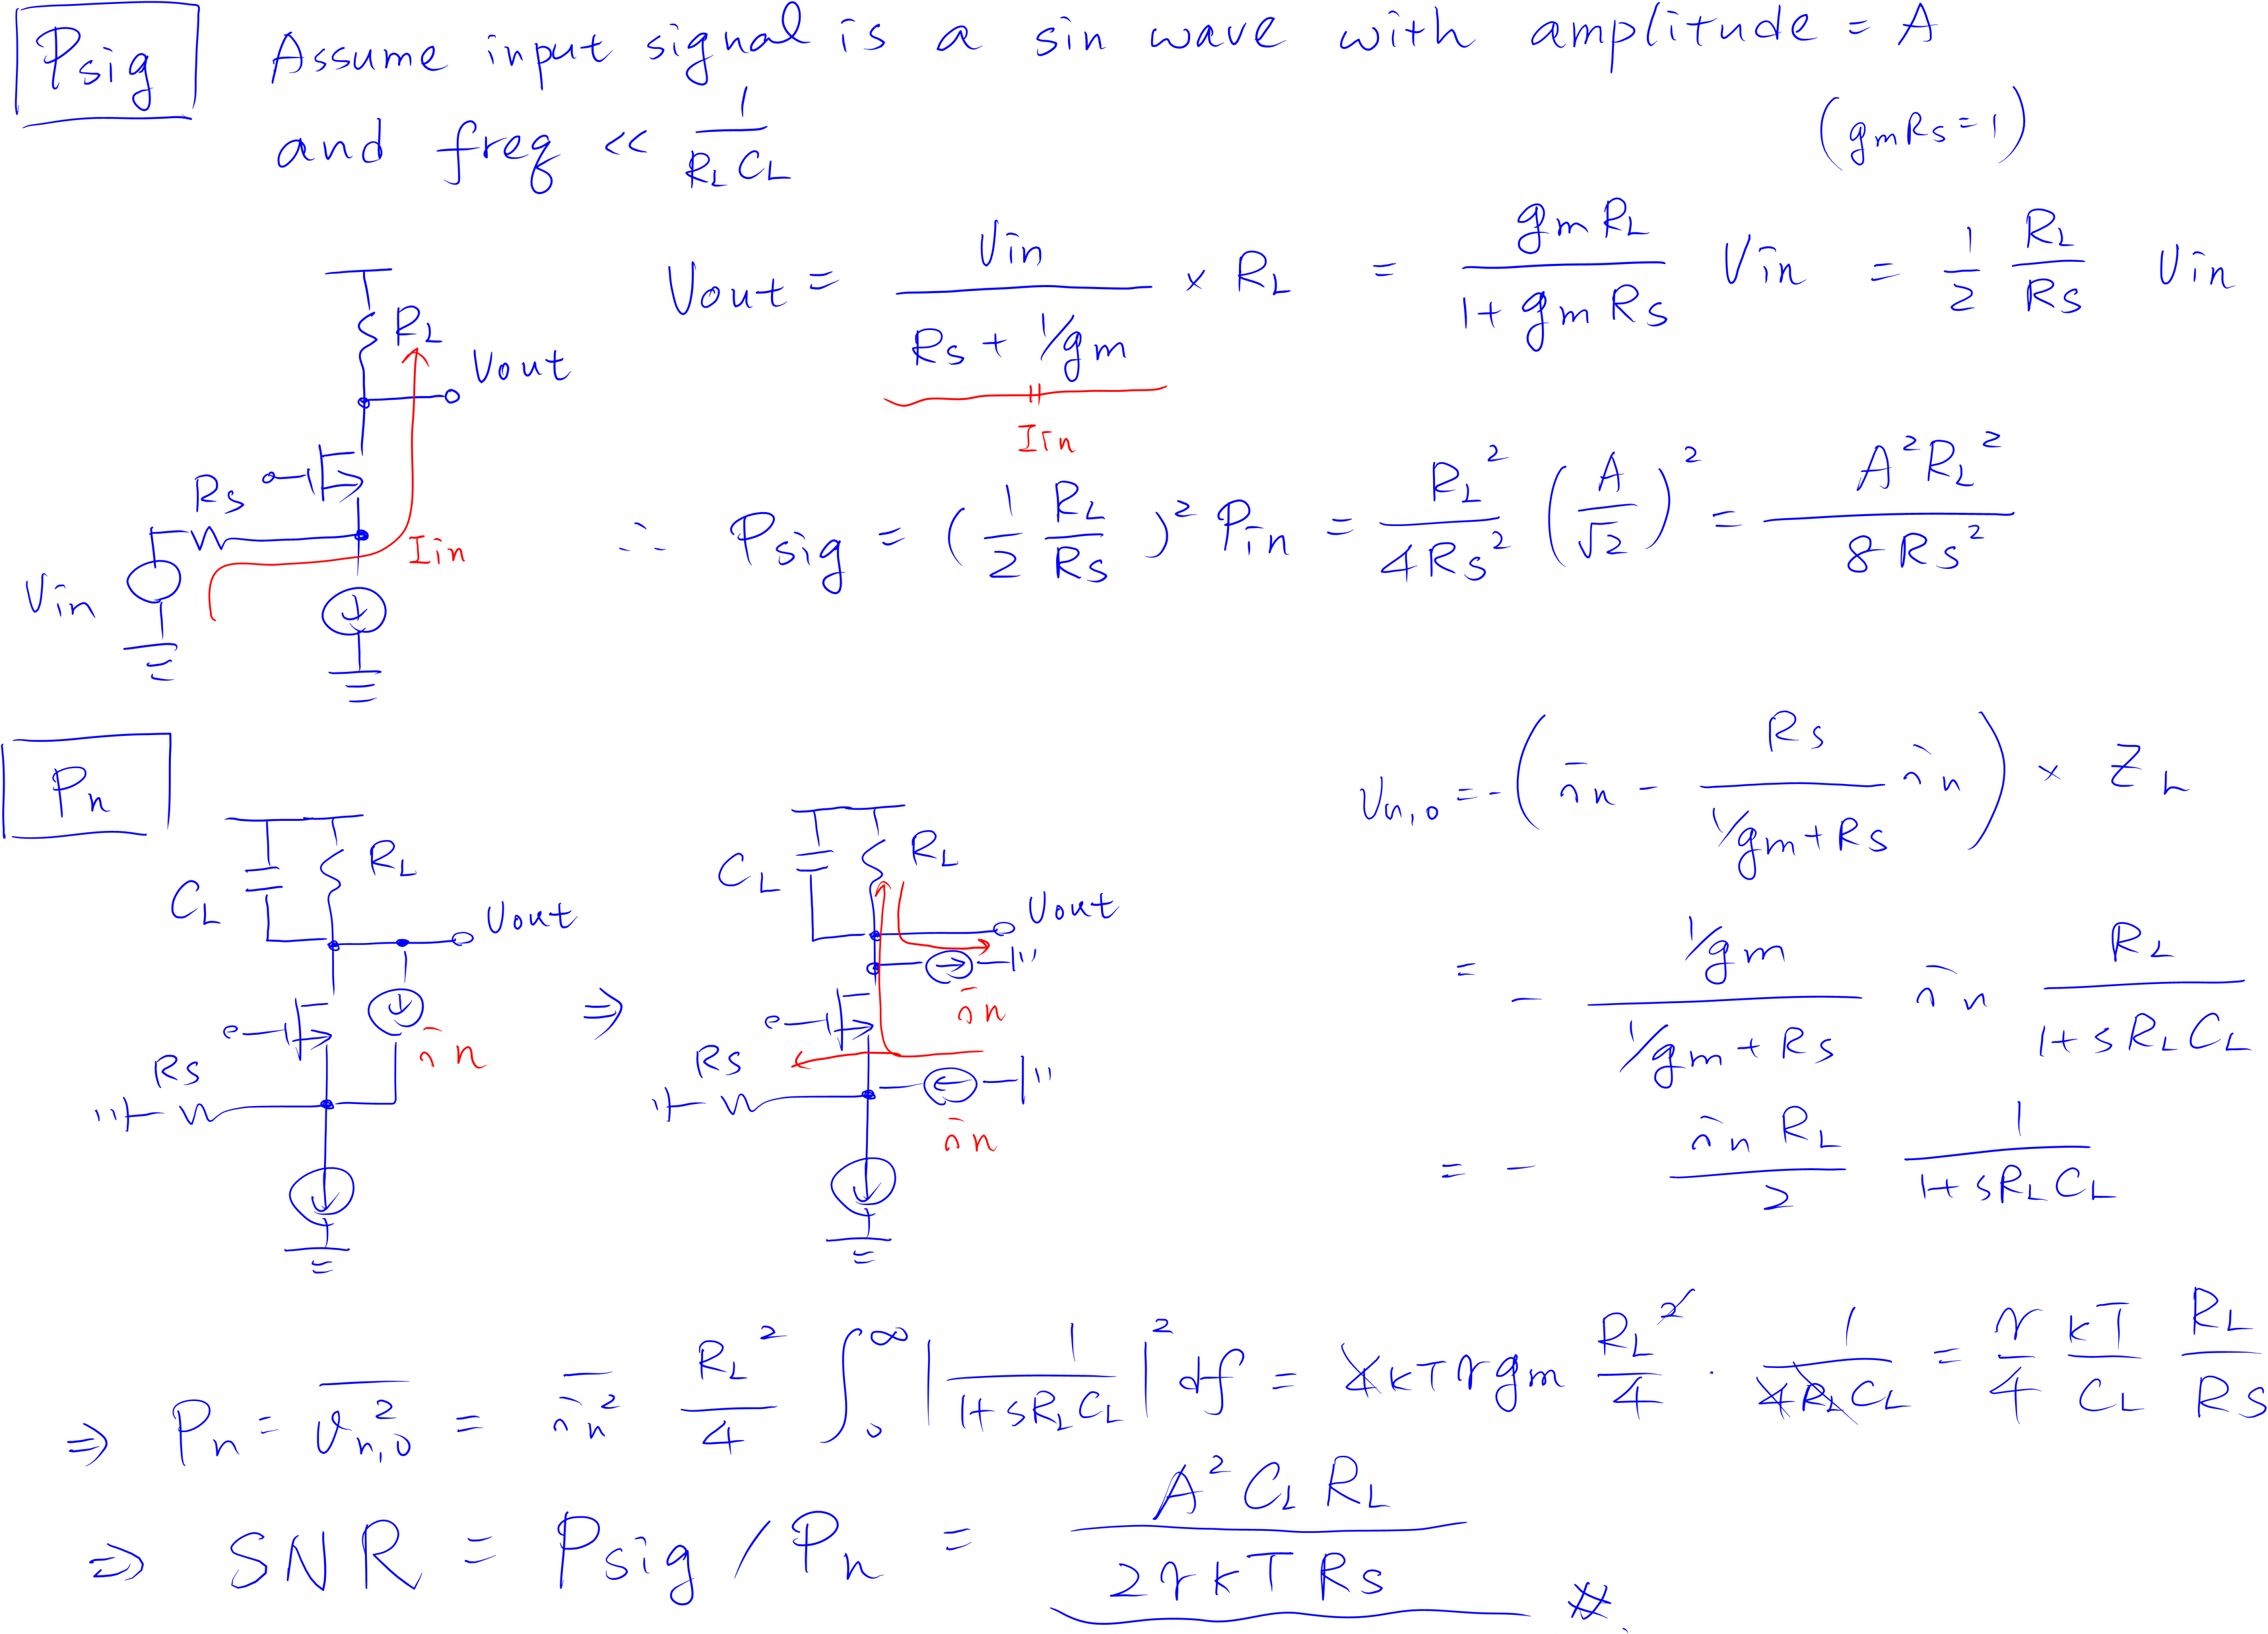 Psig Assume input signal is a sin wave with amplitude = A
and freq << 1/(R_L C_L) (gmRs=1)
Vout = Vin/(Rs + 1/gm) × R_L = gmR_L/(1+gmRs) Vin = 1/2 R_L/Rs Vin
Iin
R_L
Vout
Rs
Iin
Vin
∴ Psig = (1/2 R_L/Rs)² Pin = R_L²/(4Rs²) (A/√2)² = A²R_L²/(8Rs²)
Pn
C_L
R_L
Vout
in
Rs
⇒
C_L
R_L
Vout
in
Rs
in
Vn,o = -(in - Rs/(1/gm+Rs) in) × Z_L
= - (1/gm)/(1/gm+Rs) in R_L/(1+sR_LC_L)
= - inR_L/2 1/(1+sR_LC_L)
⇒ Pn = Vn,o² = in² R_L²/4 ∫₀^∞ |1/(1+sR_LC_L)|² df = 4kTγgm R_L²/4 · 1/(4R_LC_L) = γ/4 kT/C_L R_L/Rs
⇒ SNR = Psig/Pn = A²C_LR_L/(2γkTRs) #.